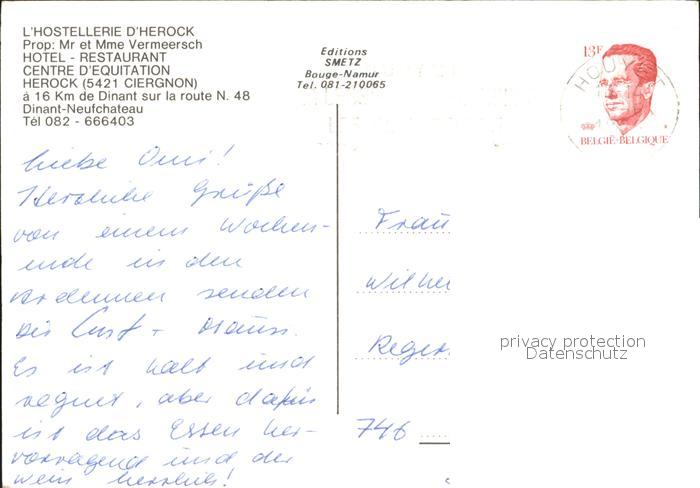 L'HOSTELLERIE D'HEROCK
Prop: Mr et Mme Vermeersch
HOTEL - RESTAURANT
CENTRE D'EQUITATION
HEROCK (5421 CIERGNON)
à 16 Km de Dinant sur la route N. 48
Dinant-Neufchateau
Tél 082 - 666403
Editions
SMETZ
Bouge-Namur
Tel. 081-210065
13F
HOUY
BELGIË-BELGIQUE
Liebe Omi!
Herzliche Grüße
von einem Wochen-
ende in den
Ardennen senden
Dir
Es ist kalt und
regnet, aber dafür
ist das Essen her-
vorragend und der
Wein herrlich!
Frau
Wilhe
Reger
746
privacy protection
Datenschutz